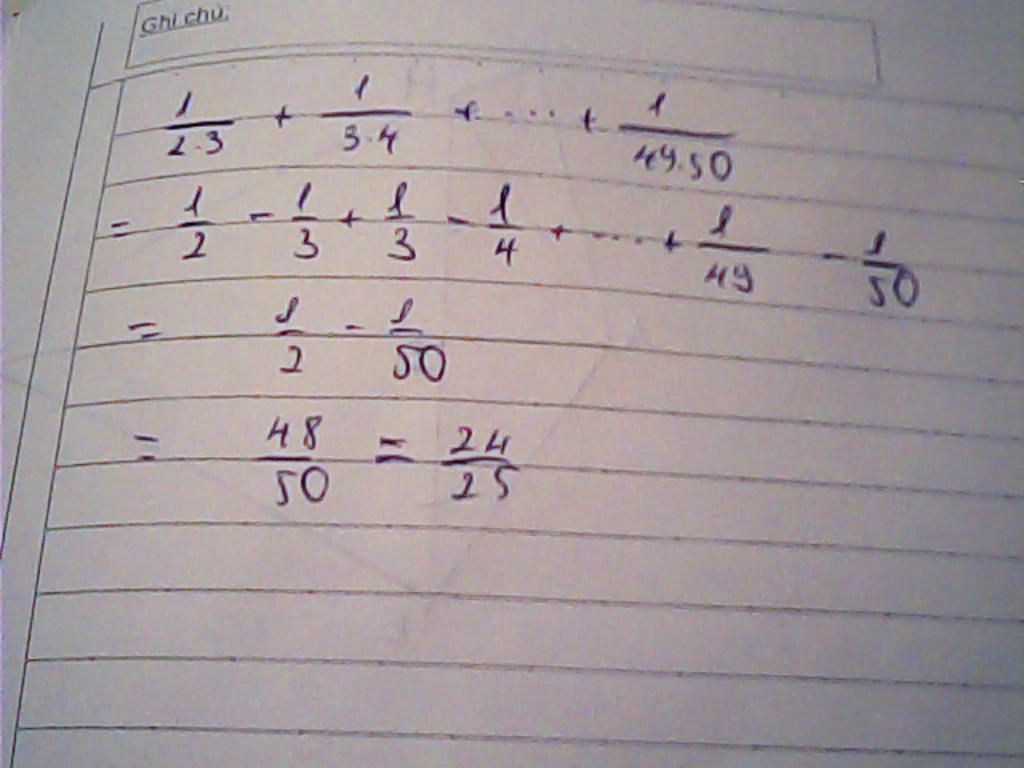 Ghi chú:
1/2.3 + 1/3.4 + .... + 1/49.50
= 1/2 - 1/3 + 1/3 - 1/4 + .... + 1/49 - 1/50
= 1/2 - 1/50
= 48/50 = 24/25